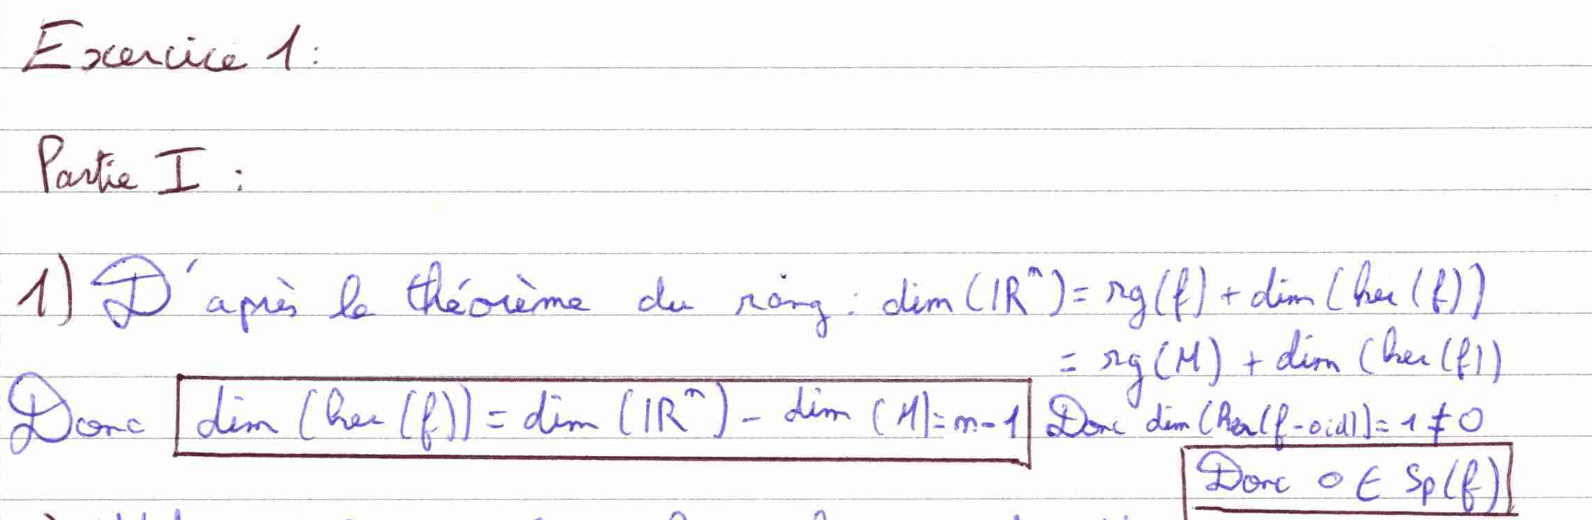 Exercice 1:
Partie I :
1) D'après le théorème du rang : dim(IR^n) = rg(f) + dim(ker(f))
= rg(M) + dim(ker(f))
Donc dim(ker(f)) = dim(IR^n) - dim(M) = n-1 Donc dim(ker(f-0id)) = 1 ≠ 0
Donc 0 ∈ Sp(f)